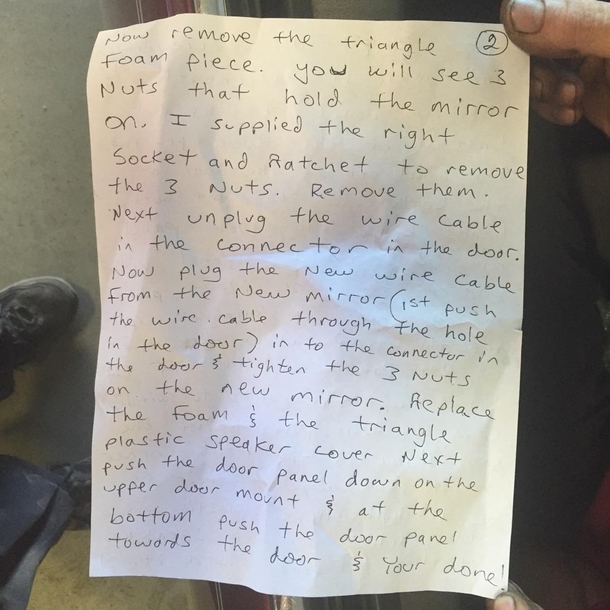 Now remove the triangle ②
Foam piece. you will see 3
Nuts that hold the mirror
on. I supplied the right
Socket and Ratchet to remove
the 3 Nuts. Remove them.
Next unplug the wire cable
in the connector in the door.
Now plug the New wire cable
From the New mirror (1st push
the wire cable through the hole
in the door) in to the connector in
the door & tighten the 3 Nuts
on the new mirror. Replace
the Foam & the triangle
plastic speaker cover Next
push the door panel down on the
upper door mount & at the
bottom push the door panel
towards the door & Your done!